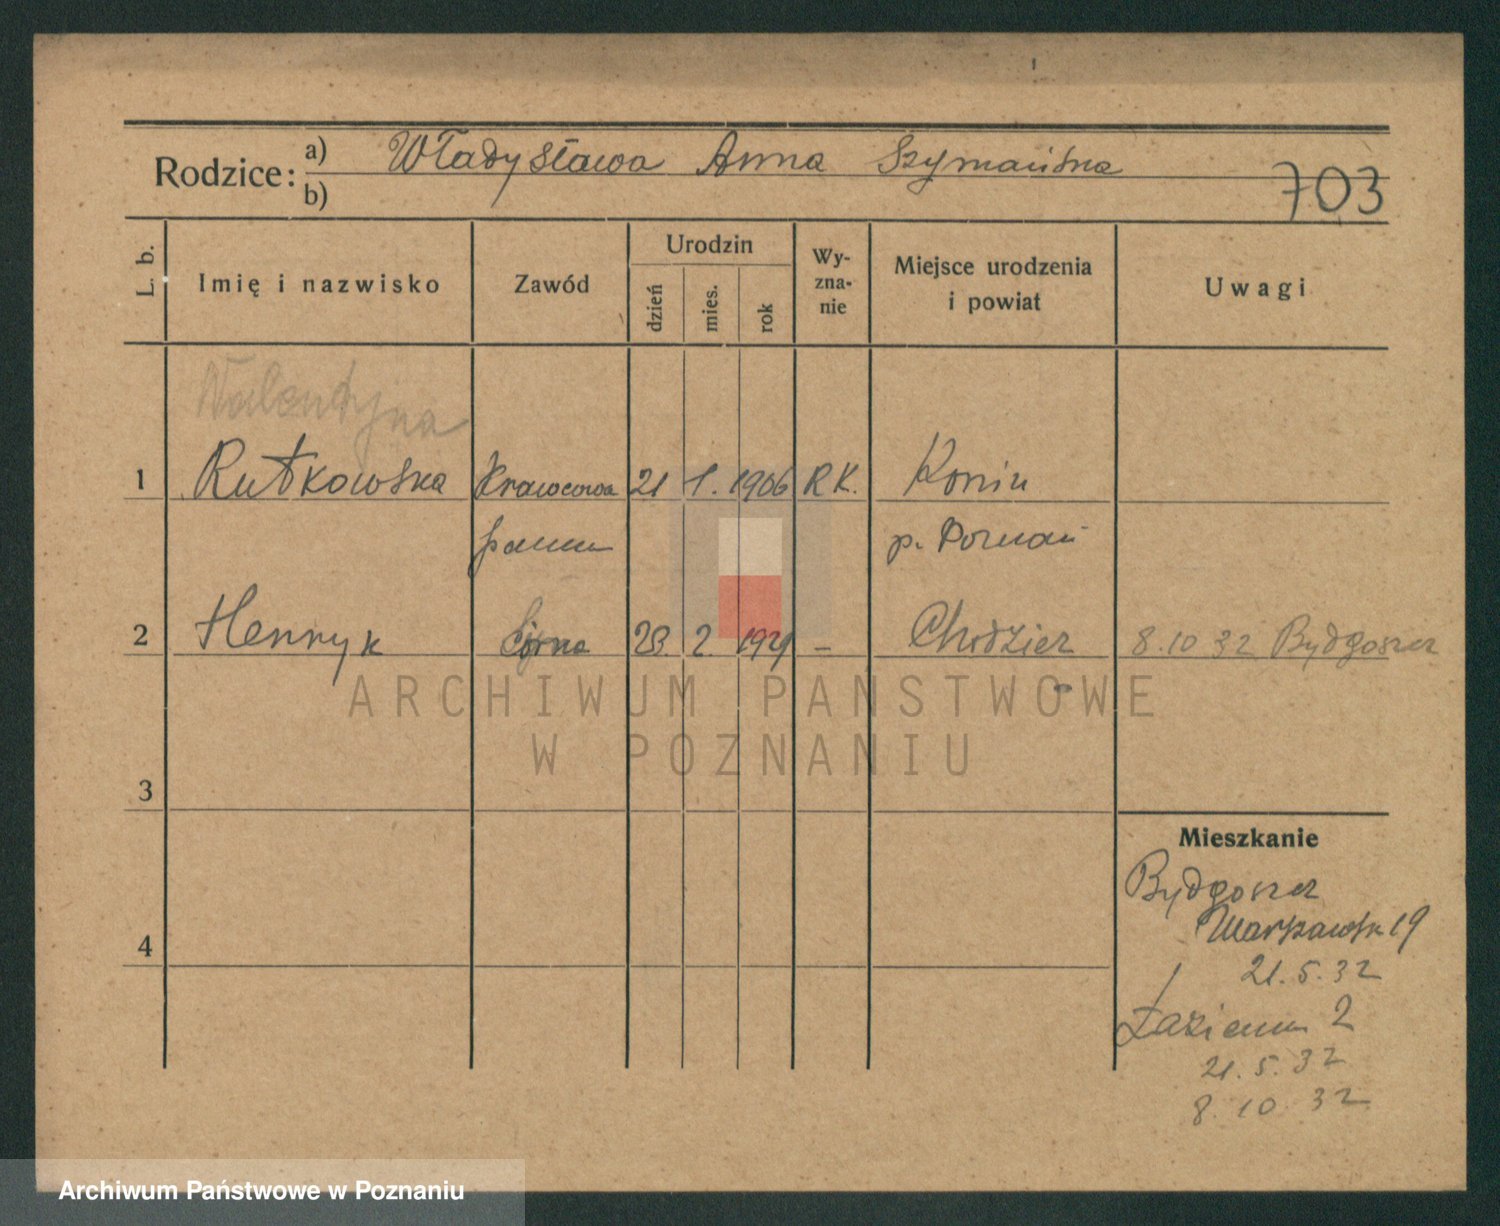 Rodzice: a) Władysława Anna Szymańska
b)
703
L. b.
Imię i nazwisko
Zawód
Urodzin
dzień
mies.
rok
Wy-
zna-
nie
Miejsce urodzenia
i powiat
Uwagi
Walentyna
1 Rutkowska Krawcowa 21 1. 1906 R K. Konin
panna p. Poznań
2 Henryk 23. 2. 1929 – Chodzież 8.10 32 Bydgoszcz
ARCHIWUM PAŃSTWOWE
W POZNANIU
3
Mieszkanie
Bydgoszcz
Warszawsk 19
4
21.5.32
2
21.5.32
8.10 32
Archiwum Państwowe w Poznaniu